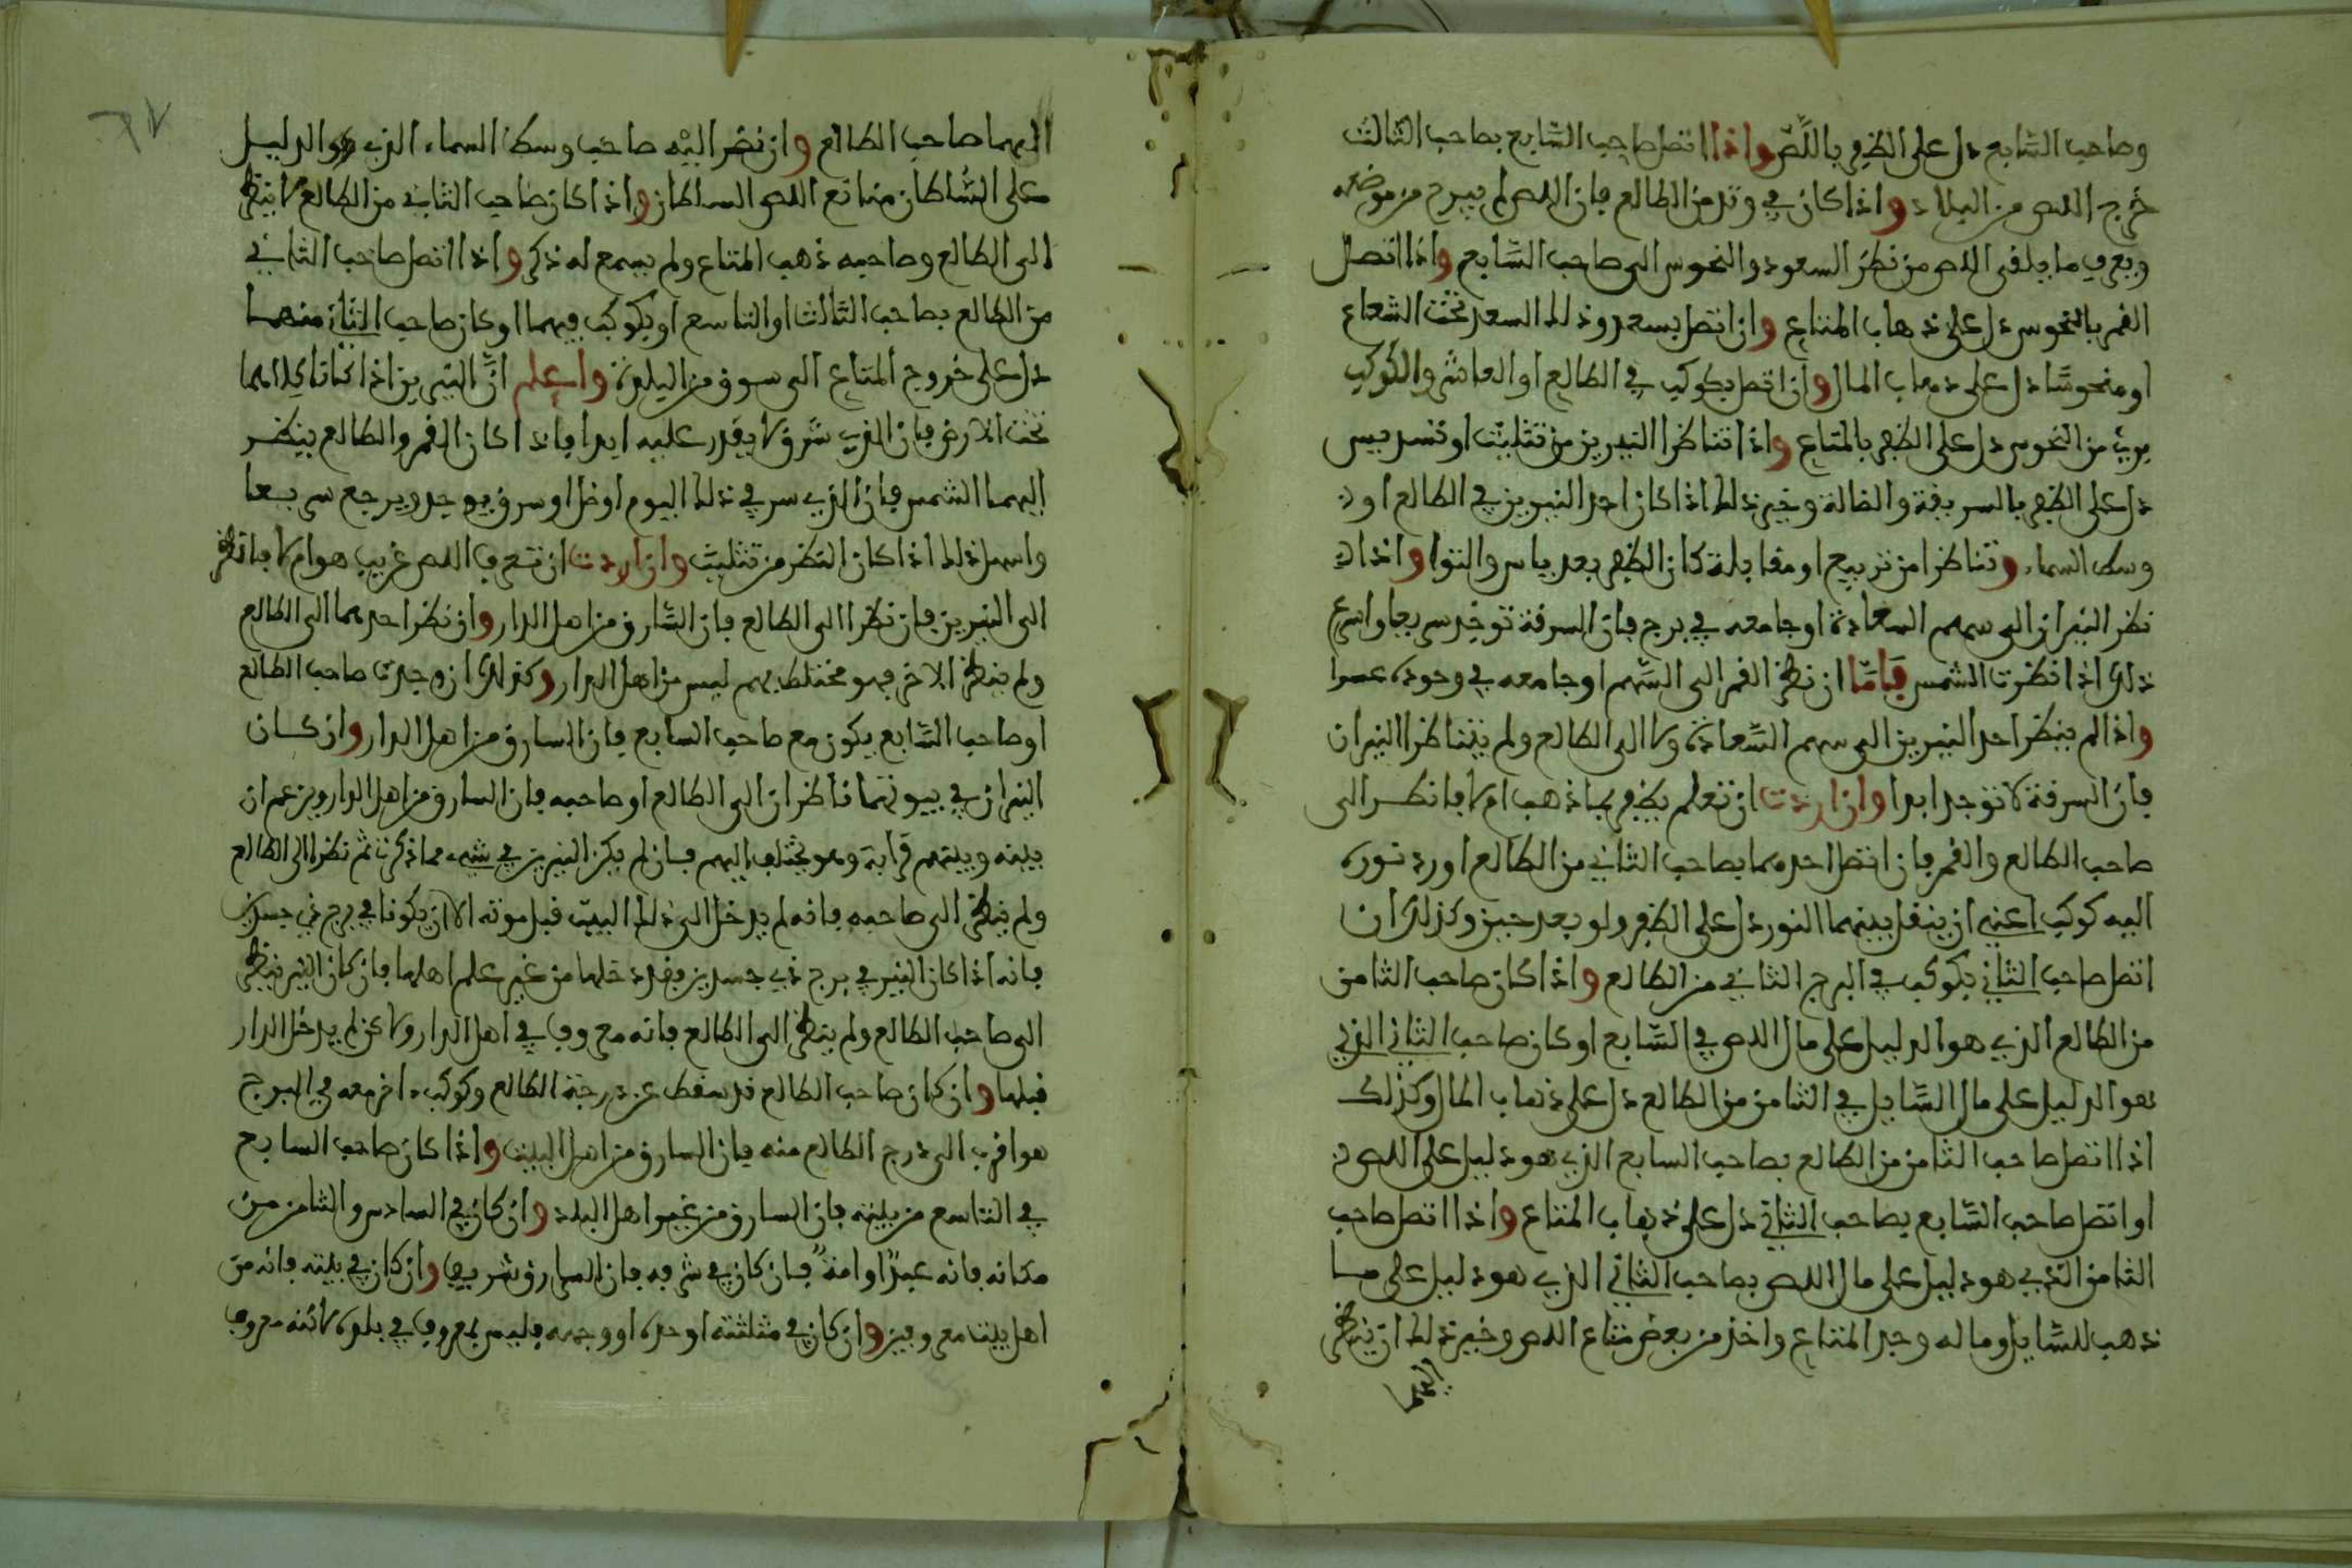 وصاحب السّابع دل على الظفر باللّصّ واذا اتصل صاحب السّابع بصاحب الثالث
خرج اللص من البلاد واذا كان في وتد من الطالع فان اللص لم يبرح من موضعه
ويعرف ما يلقى اللص من نظر السعود والنحوس الى صاحب السّابع واذا اتصل
القمر بالنحوس دل على ذهاب المتاع وان اتصل بسعد وذلك السعد تحت الشعاع
او منحوسًا دل على ذهاب المال وان اتصل بكوكب في الطالع او العاشر والكوكب
بريء من النحوس دل على الظفر بالمتاع واذا تناظرا النيرين من تثليث او تسديس
دل على الظفر بالسرقة والضالة وخير ذلك اذا كان احد النيرين في الطالع او في
وسط السماء وتناظرا من تربيع او مقابلة كان الظفر بعد ياس والتوا واذا
نظر النيران الى سهم السعادة او جامعه في برج فان السرقة توخذ سريعا واسرع
ذلك اذا نظرت الشمس فامّا ان نظر القمر الى السّهم او جامعه في وجوده عسرا
واذا لم ينظر احد النيرين الى سهم السّعادة ولا الى الطالع ولم يتناظرا النيران
فان السرقة لا توجد ابدا وان اردت ان تعلم يظفر بما ذهب ام لا فانظر الى
صاحب الطالع والقمر فان اتصل احدهما بصاحب الثاني من الطالع او رد نوره
اليه كوكب اعني ان ينقل بينهما النور دل على الظفر ولو بعد حين وكذلك ان
اتصل صاحب الثاني بكوكب في البرج الثاني من الطالع واذا كان صاحب الثامن
من الطالع الذي هو الدليل على مال اللص في السّابع او كان صاحب الثاني الذي
هو الدليل على مال السّايل في الثامن من الطالع دل على ذهاب المال وكذلك
اذا اتصل صاحب الثامن من الطالع بصاحب السابع الذي هو دليل على اللص
او اتصل صاحب السّابع بصاحب الثاني دل على ذهاب المتاع واذا اتصل صاحب
الثامن الذي هو دليل على مال اللص بصاحب الثاني الذي هو دليل على ما
ذهب للسّايل وماله وجد المتاع واخذ من بعض متاع اللص وخير ذلك ان ينظر
اليهما
٦٧
اليهما صاحب الطالع وان نظر اليه صاحب وسط السماء الذي هو الدليل
على السّلطان منا مع اللص السلطان واذا كان صاحب الثاني من الطالع لا ينظر
الى الطالع وصاحبه ذهب المتاع ولم يسمع له ذكر واذا اتصل صاحب الثاني
من الطالع بصاحب الثالث او التاسع او بكوكب فيهما او كان صاحب الثاني منهما
دل على خروج المتاع الى سوق من البلدة واعلم انّ النيرين اذا كانا كلاهما
تحت الارض فان الذي سرق لا يقدر عليه ابدا فاذا كان القمر والطالع ينظر
اليهما الشمس فان الذي سر في ذلك اليوم او ضل او سرق يوجد ويرجع سريعا
واسهل ذلك اذا كان النظر من تثليث وان اردت ان تعرف اللص غريب هو ام لا فانظر
الى النيرين فان نظرا الى الطالع فان السّارق من اهل الدار وان نظر احدهما الى الطالع
ولم ينظر الاخر فهو مختلط بهم ليس من اهل الدار وكذلك ان وجدت صاحب الطالع
او صاحب السّابع يكون مع صاحب السابع فان السارق من اهل الدار وان كان
النيران في بيوتهما ناظران الى الطالع او صاحبه فان السارق من اهل الدار ويزعم ان
بينه وبينهم قرابة وهو يختلف اليهم فان لم يكن النيرين في شيء مما ذكرت ثم نظرا الى الطالع
ولم ينظر الى صاحبه فانه لم يدخل الى ذلك البيت قبل موته الا ان يكونا في برج ذي جسدين
فانه اذا كان النير في برج ذي جسدين فقد دخلها من غير علم اهلها فان كان النير ينظر
الى صاحب الطالع ولم ينظر الى الطالع فانه معروف في اهل الدار ولاكن لم يدخل الدار
قبلها وان كان صاحب الطالع قد سقط عن درجة الطالع وكوكب اخر معه في البرج
هو اقرب الى درج الطالع منه فان السارق من اهل البيت واذا كان صاحب السابع
في التاسع من بيته فان السارق من غير اهل البلد وان كان في السادس والثامن من
مكانه فانه عبدًا او امةً فان كان في شرفه فان السارق شريف وان كان في بيته فانه من
اهل بيت معروفين وان كان في مثلثته او حده او وجهه فليس بمعروف في بلده لاكنه معروف